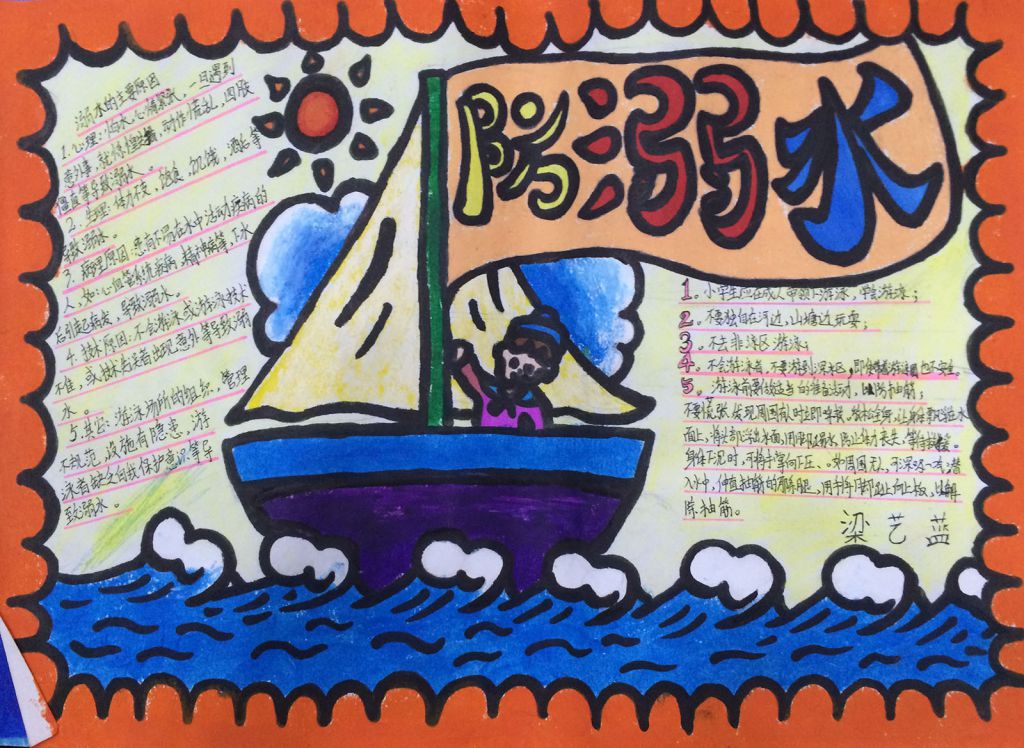 防溺水
溺水的主要原因
1.心理：怕水、心情紧张，一旦遇到
意外事，就惊惶，动作慌乱，四肢
僵直等导致溺水。
2.生理：体力不支，饱食，饥饿，酒后等
导致溺水。
3.病理原因：患有不宜在水中活动疾病的
人，如心血管系统疾病，精神病等，下水
后引起已病发，导致溺水。
4.技术原因：不会游泳或游泳技术
不佳，或技术失误者出现意外等导致溺
水。
5.其它：游泳场所的组织，管理
不规范，设施有隐患，游
泳者缺乏自我保护意识等导
致溺水。
1。小学生应在成人带领下游泳，学会游泳；
2。不要独自在河边，山塘边玩耍；
3。不去非泳区游泳；
4。不会游泳者，不要游到深水区，即使带着救生圈也不安全。
5。游泳前要做适当的准备活动，以防抽筋。
不要慌张，发现周围有人时立即呼救，放松全身，让身体飘浮在水
面上，将头部浮出水面，用脚踢水，防止体力丧失，等待救援。
身体下沉时，可将手掌向下压。如周围无人，可深吸一口气潜
入水中，伸直抽筋的那条腿，用手将脚趾向上扳，以解
除抽筋。
梁艺蓝